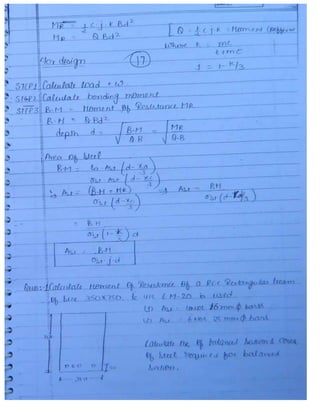 MR = 1/2 c.j.k Bd²
MR = QBd²
[Q = 1/2 c j k = Moment
where k = mc / t+mc
For design (17)
J = 1 - k/3
STEP1 Calculate load = w
STEP2 Calculate bending moment
STEP3 B.M = Moment of Resistance MR
B.M = QBd²
depth d = √(B.M / QB) = √(MR / Q.B)
Area of steel
B.M = Ast (d - xa/3)
σst · Ast (d - xc/3)
Ast = (B.M = MR) / σst (d - xc/3) ⇒ Ast = BM / σst (d
= BM / σst (1 - k/3) d
Ast = BM / σst j.d
Ques:-1 Calculate moment of Resistance of a RCC Rectangular beam
of size 350x750, M-20 is used
(1) Ast = 16mm ϕ bars
(2) Ast = 6 25mm ϕ bars
Calculate the of balanced section & area
of steel required for balanced
section.